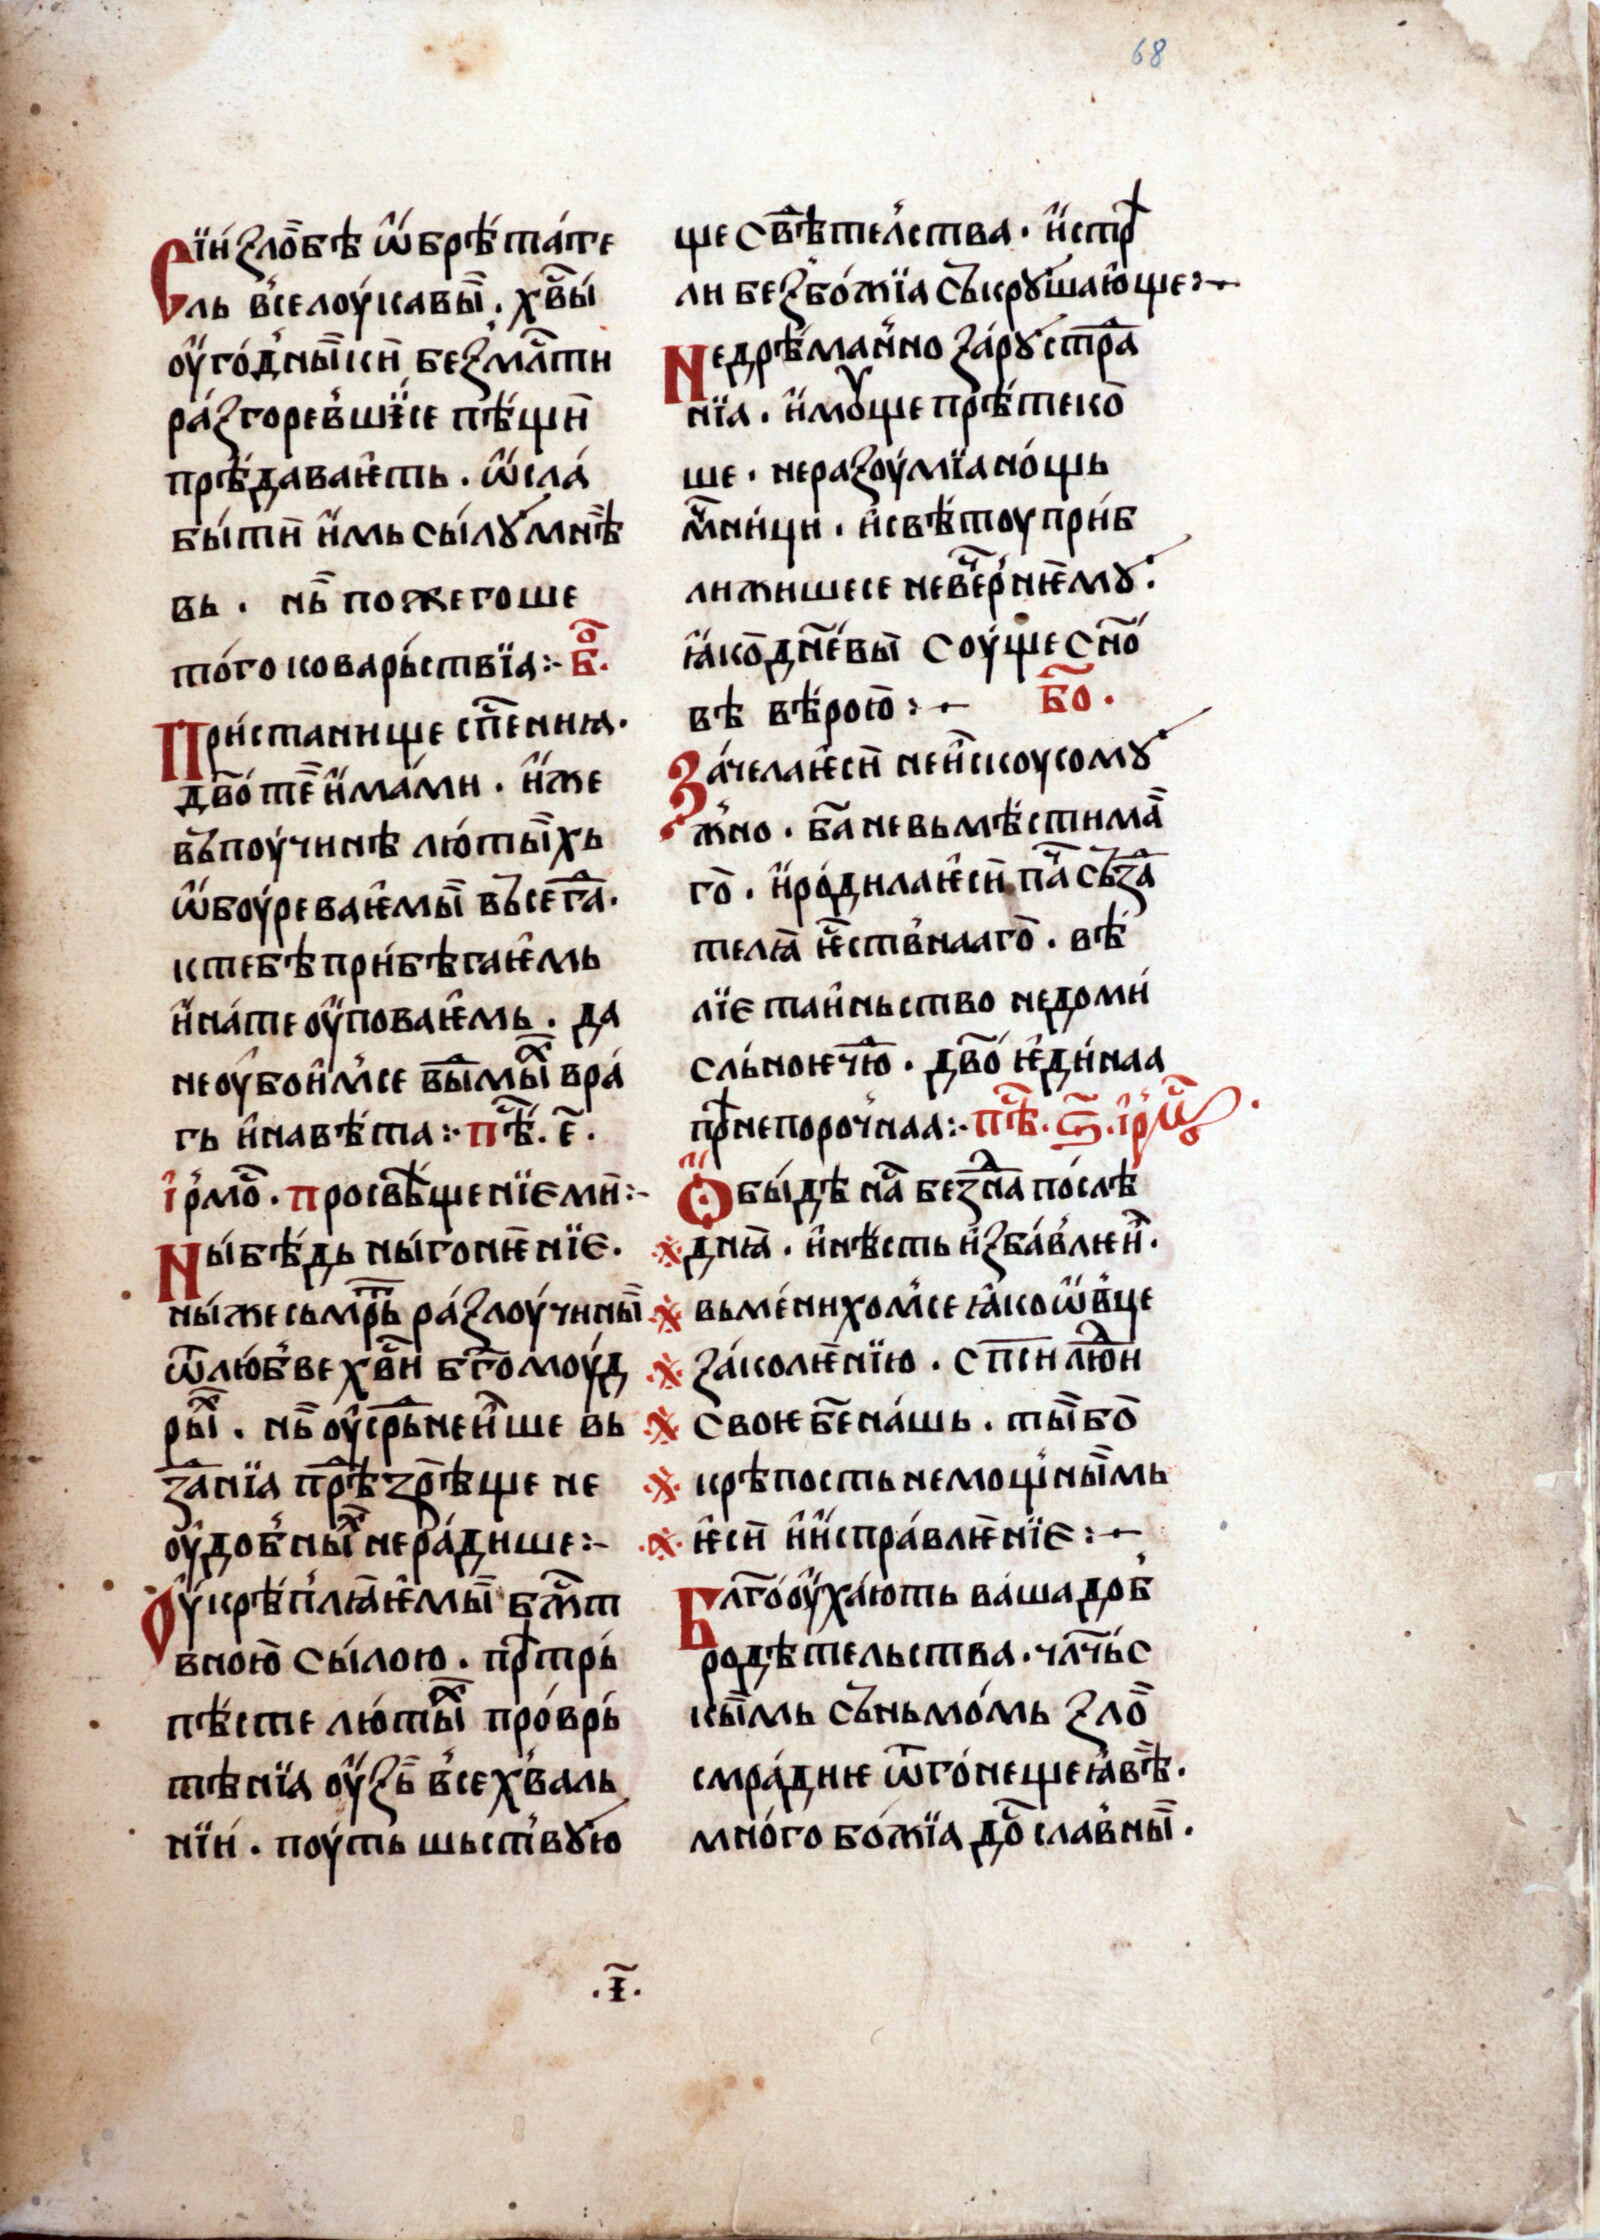 68
Сїи́ ꙁло́бѣ ѡ҆брѣ́та́те
ль в҆селоу́кавы̏ . хв҃ы́
оу҆го́д҆ны̏ к҆и беꙁмл҃ти
ра́ꙁгорев҆шїе се пѣ́щи̏
прѣ́даваѥ҆ть . ѡ҆сла́
бы́ти̏ и҆мь сы́лꙋ мнѣ̏
вь . нь̏ пожегоше
то́го коварь́ствїа :~ б҃о .
При́станище сп҃сениꙗ .
дв҃о те̏ и҆ма́ми . и҆же
вь̏поучинѣ лю́ты̏хь
ѡ҆боу́реваѥ҆мы̏ вьсегд҃а .
к тебѣ при́бѣгаѥ҆мь
и҆на́те оу҆поваѥ҆мь . да
не оу҆бои҆м҆се ви҃мы̏х вра́
гь и҆навѣ́та :~ пѣ҃с . е҃ .
і҆р҆мо҃с . просвѣ̏щенїе ми̏ :~
Ны́ бѣ́дь ны́ гоне̏нїе .
ны́же сьмр҃ть ра́ꙁлоу́чины̏
ѿ лю́б҆ве хв҃и бг҃омоу́д
ры̏х . нь̏ оу҆срь̏нен҆ше вь
ꙁданїа прѣ҃ꙁрѣ̏ще не
оу҆доб҆ны̏х не ра́дише :~
Оу҆крѣп҆лꙗѥ҆мы̏ бж҃ст
вною̏ сы́лою . прѣтрь́
пѣсте лю́ты̏х про́врь́
тѣнїа оу҆ꙁь̏ в҆сех҆валь
нїи́ . поу́ть шьст҆вꙋю
ще свѣ̏тел҆ства . и҆стрѣ
ли беꙁбо́жїа сь̏крꙋша́ю҆ще :~
Недрѣ́ман҆но ꙁа́рꙋ стра̏да
нїа . и҆мꙋще прѣ́теко̏
ше . нераꙁоу́мїа но́щь
м҃чни́ци . и҆свѣ́тоу при́б
лижише се невече҃р҆нѥ̏мꙋ .
ꙗ҆ко̏ дн҃евы̏ соу́ще сн҃о́
вѣ вѣ́рою̏ :~ б҃о .
Ꙁа́чела ѥ҆си̏ неи҆скоусому
ж҆но . б҃а невьмѣ́стима̏
го̏ . и҆ро́дила ѥ҆си̏ пл҃ъ съꙁд҃а
телꙗ̏ ѥ҆ст҃ств҆наго̏ . вѣ́
лїе таи҆ньство недоми́
сль́ноѥ чю̏ . дв҃о ѥ҆ди́наа
прѣнепороч҆наа :~ пѣ҃с . ѕ҃ . і҆р҆мо҃с .
Ѻ҆бы́дѣ на҃с беꙁдна по́слѣ
днꙗ̏ . и҆нѣ́сть и҆ꙁба́в҆лѥи .
вьме́нихом҆се ꙗ҆ко ѡ҆в҆це
ꙁа́колѥ̏нїю . сп҃си лю҃ди
своѥ бж҃е на́шь . ты̏ бо̏
крѣпость немощ҆ны̏мь
ѥ҆си̏ и҆и҆спра́влѥ̏нїе :~
Бл҃гоо҆у́ха́ють ва́ша доб҆
родѣ́тельства . чл҃чьс
кы̏мь съньмо́мь ꙁло̏
смра́дниѥ ѿго́неще ꙗ҆вѣ̏ .
мно́го бо́жїа до̏ слав҆ны̏ .
. і҃ .